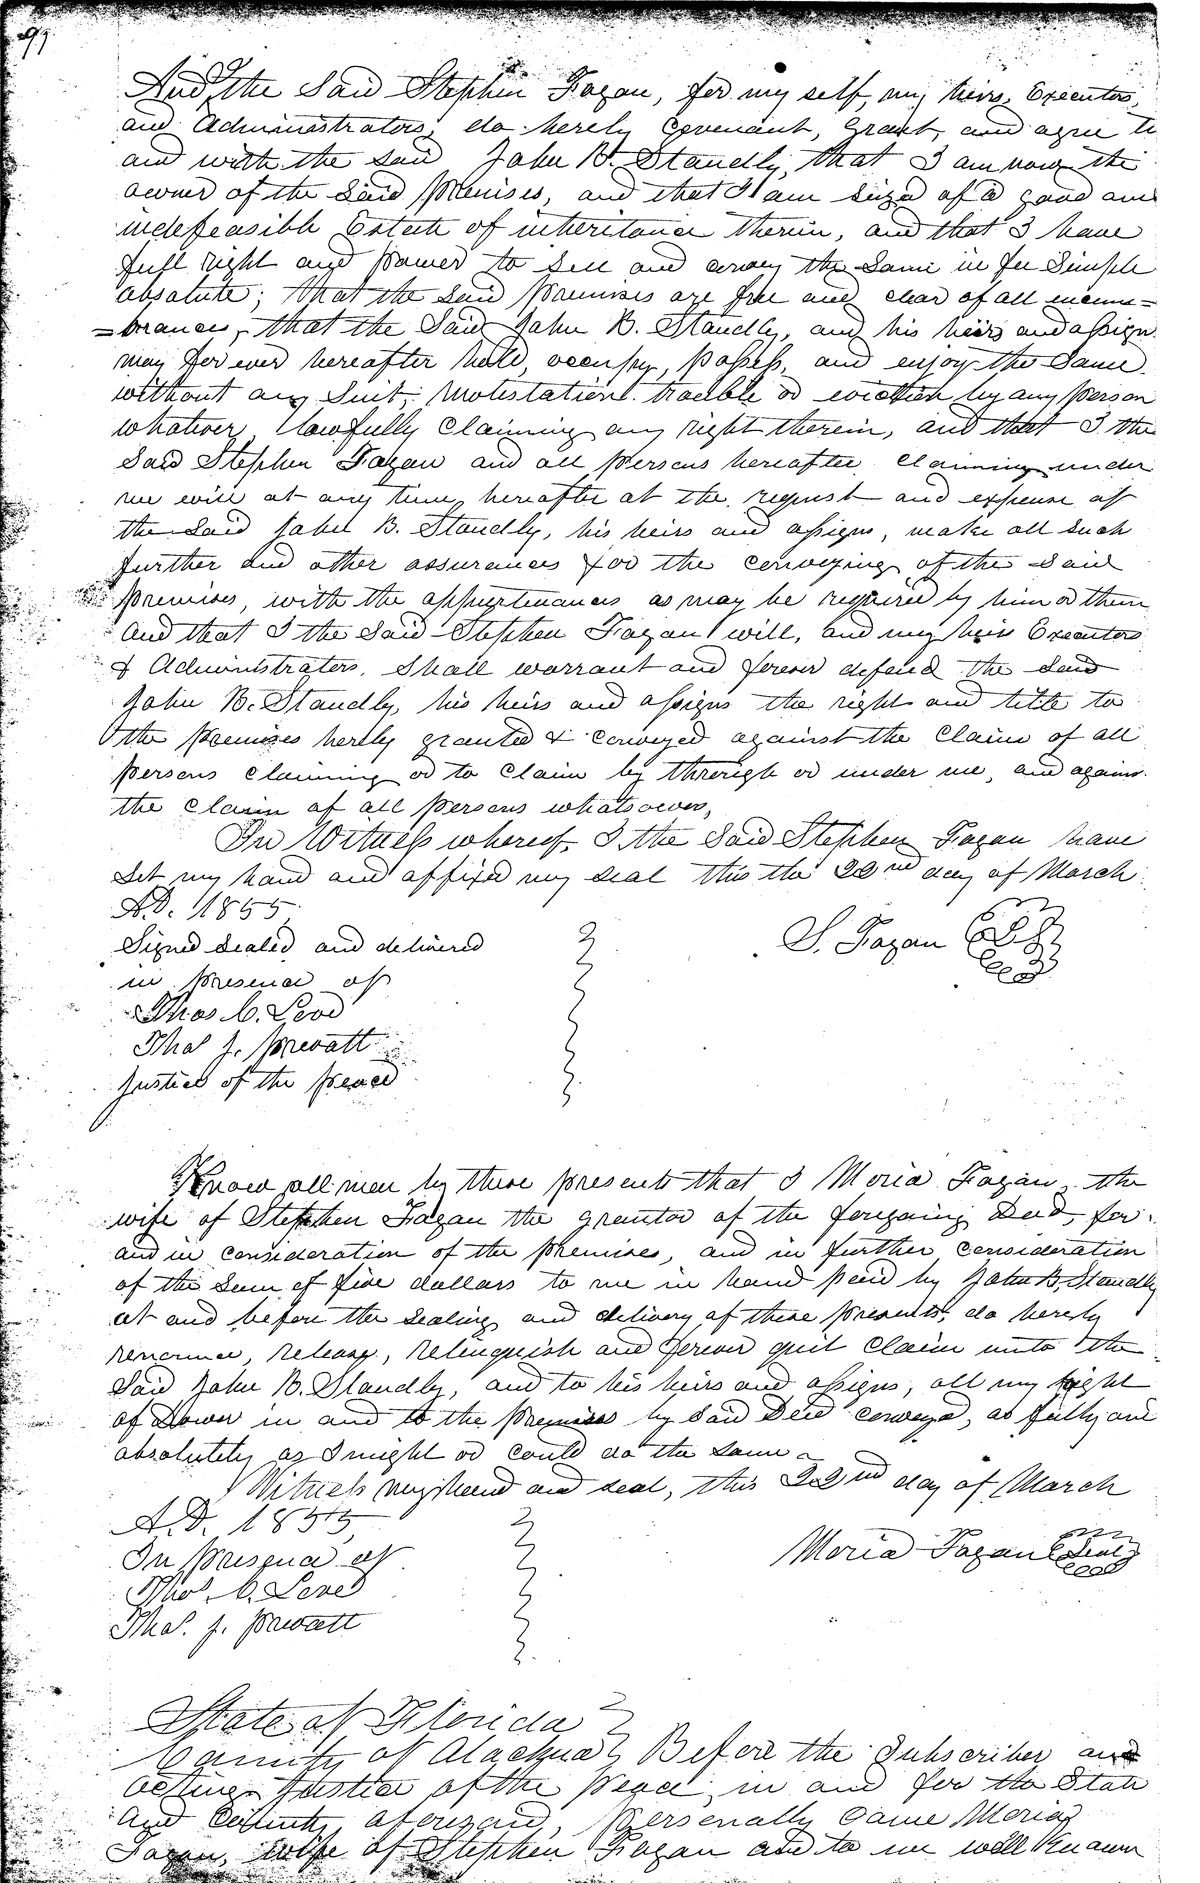 99
And I the Said Stephen Fagan, for my self, my heirs, Executors,
and Administrators, do hereby Covenant, Grant, and agree to
and with the said John B. Standly, that I am now the
owner of the Said premises, and that I am seized of a good and
indefeasible Estate of inheritance therein, and that I have
full right and power to sell and convey the Same in fee Simple
absolute; that the said premises are free and clear of all incum=
=brances, that the Said John B. Standly, and his heirs and assigns
may forever hereafter hold, occupy, possess, and enjoy the Same
without any Suit, Molestation trouble or eviction by any person
whatever lawfully Claiming any right therein, and that I the
Said Stephen Fagan and all persons hereafter Claiming under
me will at any time hereafter at the request and expense of
the Said John B. Standly, his heirs and assigns, make all such
further and other assurances for the conveying of the said
premises, with the appurtenances as may be required by him or them
And that I the Said Stephen Fagan will, and my heirs Executors
& Administrators, Shall warrant and forever defend the Said
John B. Standly, his heirs and assigns the right and title to
the premises hereby granted & conveyed against the Claim of all
persons claiming or to Claim by through or under me, and against
the Claim of all persons whatsoever,
In Witness whereof, I the Said Stephen Fagan have
Set my hand and affixed my seal this the 22nd day of March
A.D. 1855
Signed Sealed and delivered
S. Fagan Seal
in presence of
Thos C. Love
Thos J. Prevatt
Justice of the Peace
Know all men by these presents that I Moria Fagan, the
wife of Stephen Fagan the grantor of the foregoing Deed, for
and in consideration of the premises, and in further consideration
of the Sum of five dollars to me in hand paid by John B. Standly
at and before the Sealing and delivery of these presents, do hereby
renounce, release, relinquish and forever quit Claim unto the
Said John B. Standly, and to his heirs and assigns, all my right
of Dower in and to the premises by Said Deed conveyed, as fully and
absolutely as I might or could do the same
Witness my hand and seal, this 22nd day of March
A.D. 1855
In presence of
Moria Fagan Seal
Thos. C. Love
Thos. J. Prevatt
State of Florida
County of Alachua Before the Subscriber and
acting Justice of the Peace, in and for the State
and County aforesaid, personally Came Moria
Fagan, wife of Stephen Fagan and to me well Known